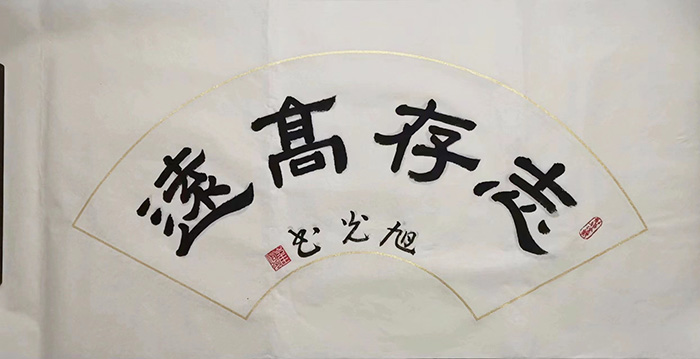 志存高遠
旭光书